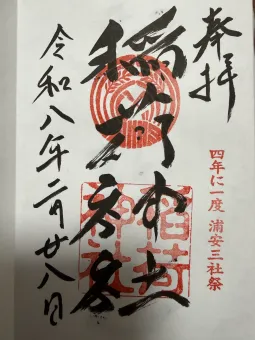 奉拝
四年に一度 浦安三社祭
稲荷神社
稲荷神社
令和八年二月廿八日